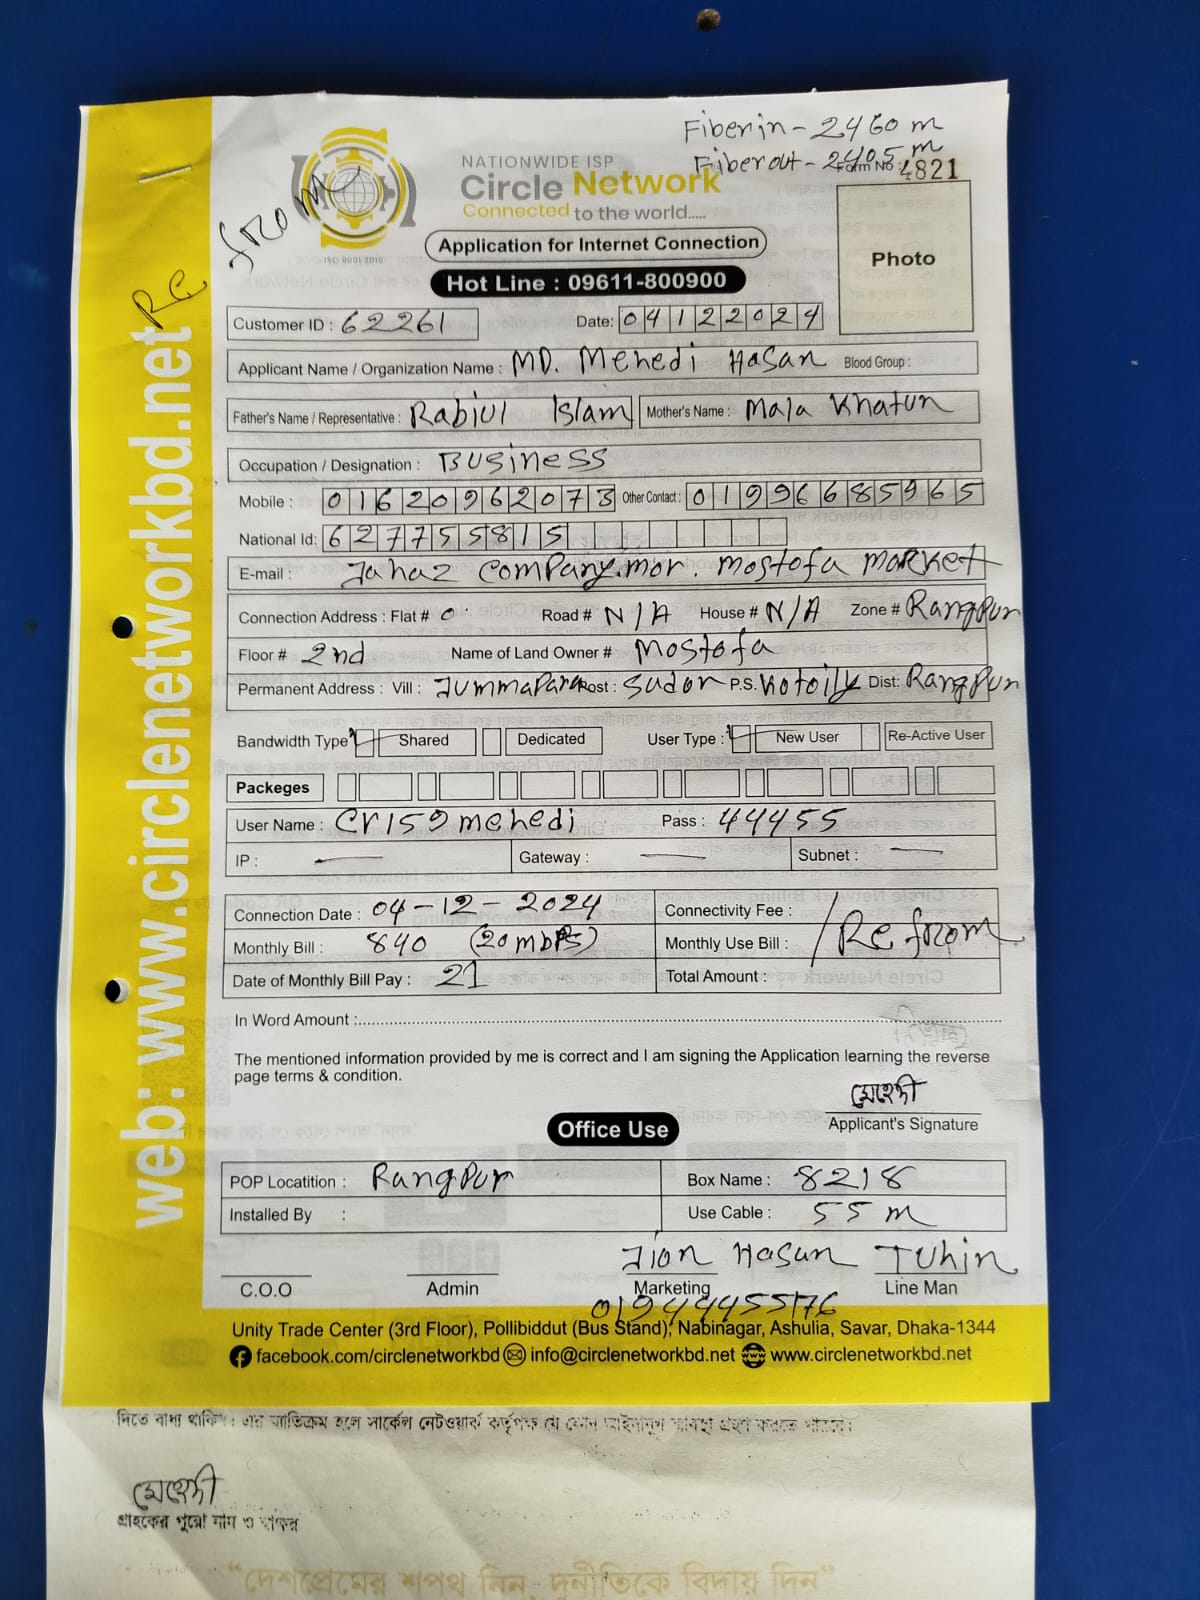 Fiber in - 2460 m
Fiber out - 2405 m
Form No : 4821
NATIONWIDE ISP
Circle Network
Connected to the world.....
ISO 9001 2015
Re from
Application for Internet Connection
Hot Line : 09611-800900
Photo
Customer ID : 62261 Date: 04122024
Applicant Name / Organization Name : MD. Mehedi Hasan Blood Group :
Father's Name / Representative : Rabiul Islam Mother's Name : Mala Khatun
Occupation / Designation : Business
Mobile : 01620962073 Other Contact : 01996685965
National Id: 6277555815
E-mail : Jahaz company.mor. mostofa market
Connection Address : Flat # 0 Road # N/A House # N/A Zone # Rangpur
Floor # 2nd Name of Land Owner # Mostofa
Permanent Address : Vill : Jummapara Post : Sudor P.S. Kotoily Dist: Rangpur
Bandwidth Type Shared Dedicated User Type : New User Re-Active User
Packeges
User Name : Cr159mehedi Pass : 44455
IP : — Gateway : — Subnet : —
Connection Date : 04-12-2024 Connectivity Fee :
Monthly Bill : 840 (20mbps) Monthly Use Bill : Re from
Date of Monthly Bill Pay : 21 Total Amount :
In Word Amount :
The mentioned information provided by me is correct and I am signing the Application learning the reverse
page terms & condition.
মেহেদী
Applicant's Signature
Office Use
POP Locatition : Rangpur Box Name : 8218
Installed By : Use Cable : 55 m
Jion Hasan Tuhin
C.O.O Admin Marketing Line Man
01944455176
Unity Trade Center (3rd Floor), Pollibiddut (Bus Stand), Nabinagar, Ashulia, Savar, Dhaka-1344
facebook.com/circlenetworkbd info@circlenetworkbd.net www.circlenetworkbd.net
web: www.circlenetworkbd.net
দিতে বাধ্য থাকিব। এর ব্যতিক্রম হলে সার্কেল নেটওয়ার্ক কর্তৃপক্ষ যে কোন আইনানুগ ব্যবস্থা গ্রহণ করতে পারবে।
মেহেদী
গ্রাহকের পুরো নাম ও স্বাক্ষর
“দেশপ্রেমের শপথ নিন, দুর্নীতিকে বিদায় দিন”